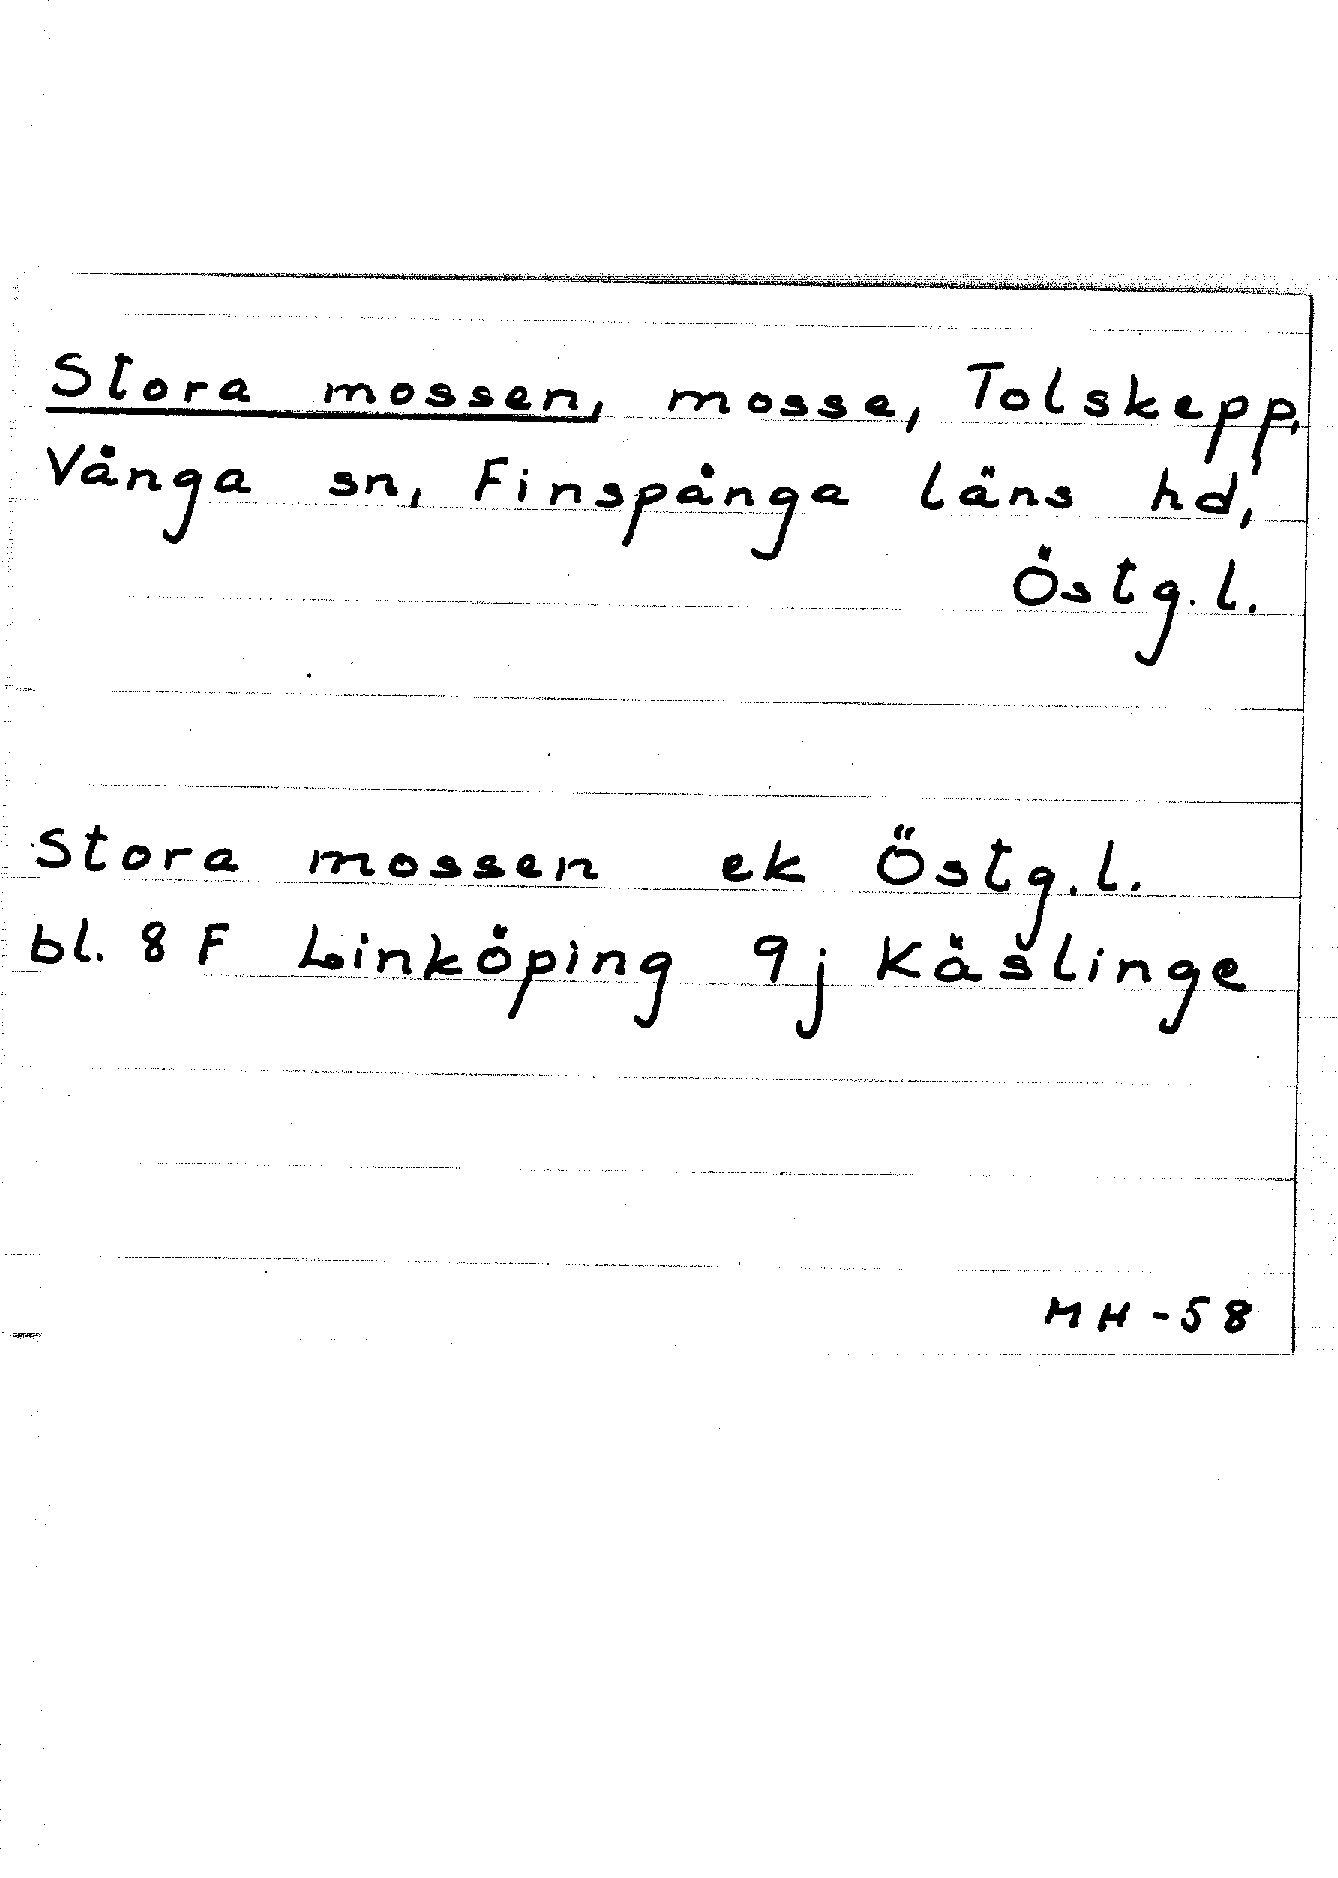 Stora mossen, mosse, Tolskepp,
Vånga sn, Finspånga läns hd,
Östg.l.
Stora mossen ek Östg.l.
bl. 8 F Linköping 9j Käslinge
MH-58